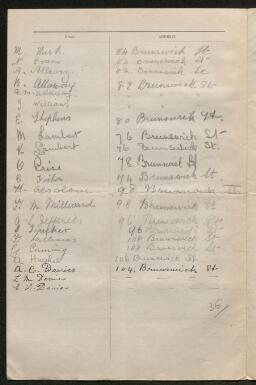 NAME ADDRESS
M Hirsh 84 Brunswick St
F Evans 82 Brunswick St
A. Allaway 82 Brunswick St
K. Allaway 82 Brunswick St
E. M. Allaway " "
J Williams " "
E. Stephens 80 Brunswick St
M Lambert 76 Brunswick St
K Lambert 76 Brunswick St
C Price 78 Brunswick St
E 74 Brunswick St
H. Absalom 98 Brunswick St
H. M. Millward 98 Brunswick St
A. J Jefferies 96 Brunswick St
J 96 Brunswick St
F Williams 108 Brunswick St
E. Cuming 108 Brunswick St
A Hughes 106 Brunswick St
A. C. Davies 104, Brunswick St
L M Davies
E J. Davies
35/